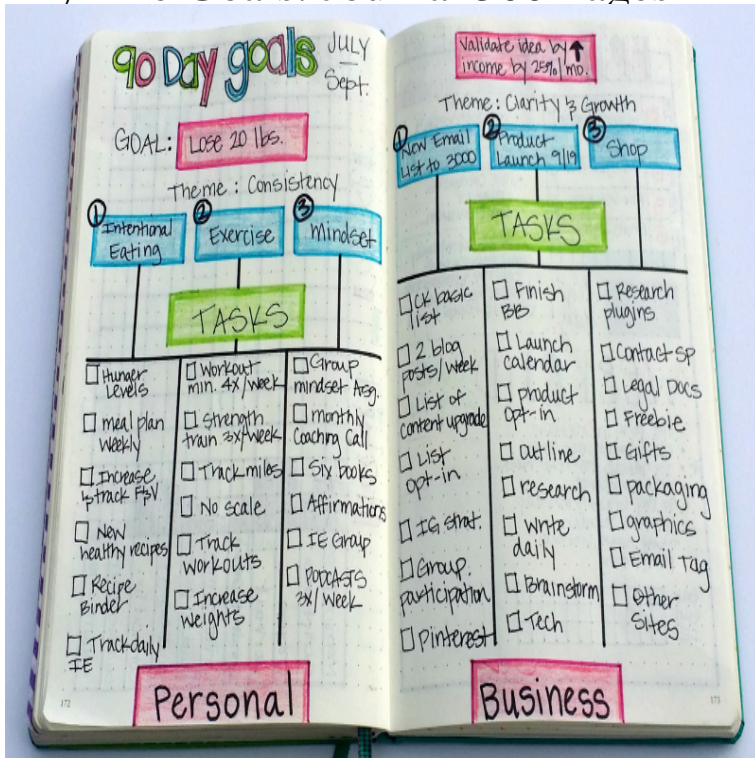 90 Day goals
JULY
—
Sept.
GOAL:
Lose 20 lbs.
Theme: Consistency
1
Intentional
Eating
2
Exercise
3
Mindset
TASKS
Hunger
Levels
meal plan
Weekly
Increase
& track F&V
New
healthy recipes
Recipe
Binder
Track daily
IE
Workout
min. 4x/week
Strength
train 3x/week
Track miles
No scale
Track
workouts
Increase
weights
Group
mindset Asg.
monthly
Coaching Call
Six books
Affirmations
IE Group
PODCASTS
3x/week
172
Personal
Validate idea by ↑
income by 25%/mo.
Theme: Clarity & Growth
1
New Email
List to 3000
2
Product
Launch 9/19
3
Shop
TASKS
CK basic
list
2 blog
posts/week
List of
content upgrade
List
opt-in
IG strat.
Group
participation
Pinterest
Finish
BB
Launch
calendar
product
opt-in
outline
research
Write
daily
Brainstorm
Tech
Research
plugins
Contact SP
Legal Docs
Freebie
Gifts
packaging
graphics
Email Tag
Other
Sites
Business
173